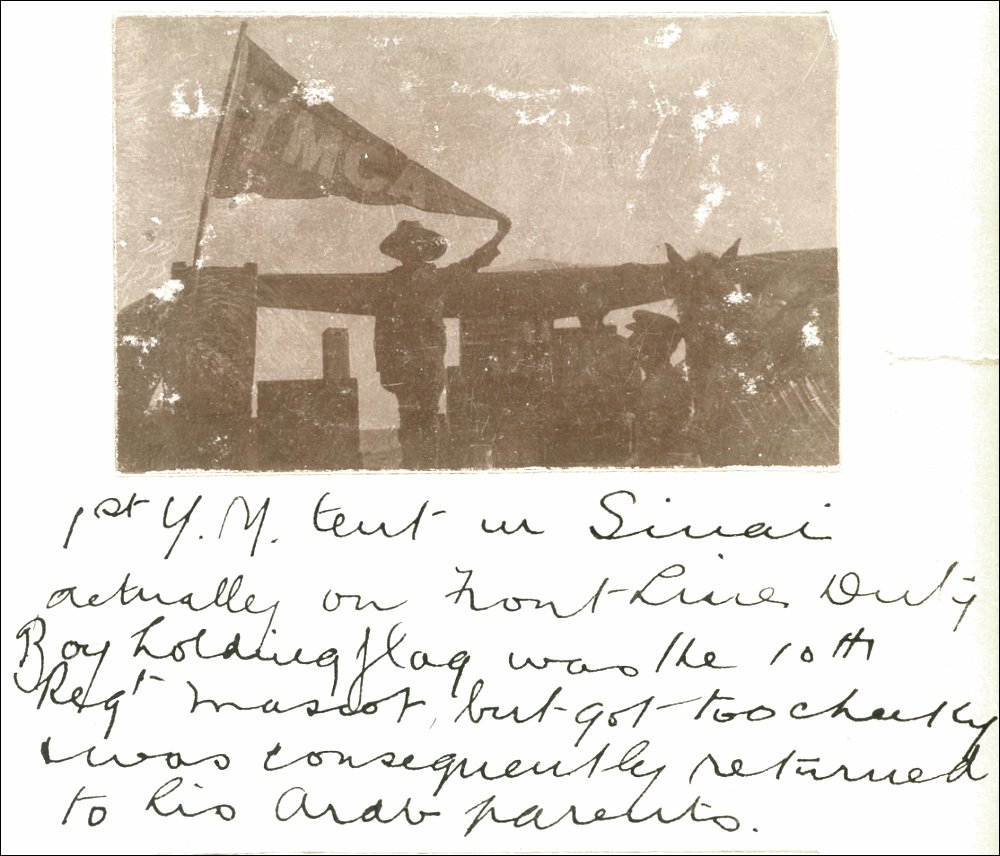 YMCA
1st Y.M. tent in Sinai
actually on Front Line Duty
Boy holding flag was the 10th
Regt mascot, but got too cheeky
& was consequently returned
to his Arab parents.